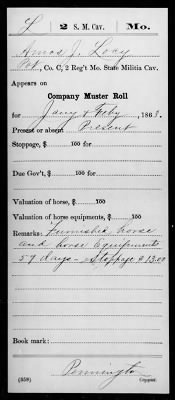 L 2 S. M. Cav. Mo.
Amos J. Lory
Pvt., Co. C, 2 Reg't Mo. State Militia Cav.
Appears on
Company Muster Roll
for Jany & Feby, 1863.
Present or absent Present
Stoppage, $ 100 for
Due Gov't, $ 100 for
Valuation of horse, $ 100
Valuation of horse equipments, $ 100
Remarks: Furnished horse
and horse Equipments
59 days - Stoppage $13.00
Book mark:
Pennington
(359) Copyist.